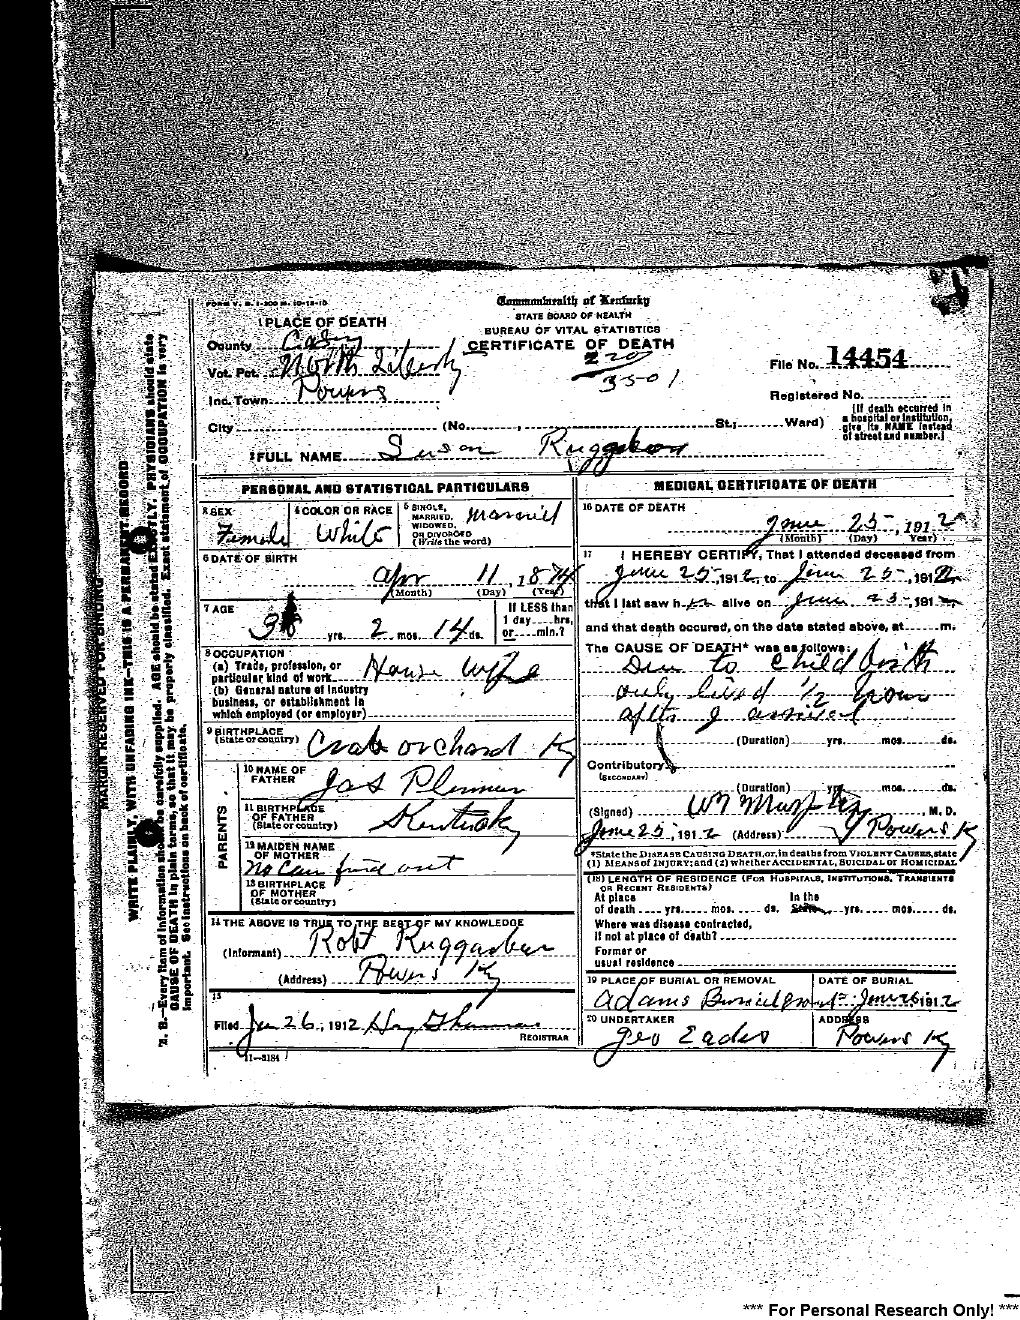 FORM V. S. 1-200 M. 10-13-10
Commonwealth of Kentucky
STATE BOARD OF HEALTH
BUREAU OF VITAL STATISTICS
CERTIFICATE OF DEATH
220
3501
1 PLACE OF DEATH
County Casey
Vot. Pct. North Liberty
Inc. Town Powers
City (No. , St.; Ward)
File No. 14454
Registered No.
[If death occurred in
a hospital or institution,
give its NAME instead
of street and number.]
2 FULL NAME Susan
PERSONAL AND STATISTICAL PARTICULARS
3 SEX
Female
4 COLOR OR RACE
White
5 SINGLE,
MARRIED,
WIDOWED,
OR DIVORCED
(Write the word)
Married
6 DATE OF BIRTH
Apr 11, 1874
(Month) (Day) (Year)
7 AGE
38 yrs. 2 mos. 14 ds.
If LESS than
1 day hrs.
or min.?
8 OCCUPATION
(a) Trade, profession, or
particular kind of work House Wife
(b) General nature of industry
business, or establishment in
which employed (or employer)
9 BIRTHPLACE
(State or country) Crab orchard Ky
PARENTS
10 NAME OF
FATHER Jas
11 BIRTHPLACE
OF FATHER
(State or country) Kentucky
12 MAIDEN NAME
OF MOTHER
No Can find out
13 BIRTHPLACE
OF MOTHER
(State or country)
14 THE ABOVE IS TRUE TO THE BEST OF MY KNOWLEDGE
(Informant) Robt
(Address) Powers Ky
15
Filed Jun 26, 1912
REGISTRAR
11-3184
MEDICAL CERTIFICATE OF DEATH
16 DATE OF DEATH
June 25, 1912
(Month) (Day) Year)
17 I HEREBY CERTIFY, That I attended deceased from
June 25, 1912, to June 25, 1912,
that I last saw h alive on June 25, 191
and that death occured, on the date stated above, at m.
The CAUSE OF DEATH* was as follows:
Due to Child birth
only lived 1/2 hour
after I arrived
(Duration) yrs. mos. ds.
Contributory
(SECONDARY)
(Duration) yrs. mos. ds.
(Signed) M. D.
June 25, 1912 (Address) Powers Ky
*State the DISEASE CAUSING DEATH, or, in deaths from VIOLENT CAUSES, state
(1) MEANS of INJURY; and (2) whether ACCIDENTAL, SUICIDAL or HOMICIDAL
(18) LENGTH OF RESIDENCE (FOR HOSPITALS, INSTITUTIONS, TRANSIENTS
OR RECENT RESIDENTS)
At place In the
of death yrs. mos. ds. State yrs. mos. ds.
Where was disease contracted,
If not at place of death?
Former or
usual residence
19 PLACE OF BURIAL OR REMOVAL
Adams
DATE OF BURIAL
June 26 1912
20 UNDERTAKER
Geo Eades
ADDRESS
Powers Ky
MARGIN RESERVED FOR BINDING
WRITE PLAINLY, WITH UNFADING INK—THIS IS A PERMANENT RECORD
N. B.—Every item of information should be carefully supplied. AGE should be stated EXACTLY. PHYSICIANS should state
CAUSE OF DEATH in plain terms, so that it may be properly classified. Exact statement of OCCUPATION is very
important. See instructions on back of certificate.
*** For Personal Research Only! ***